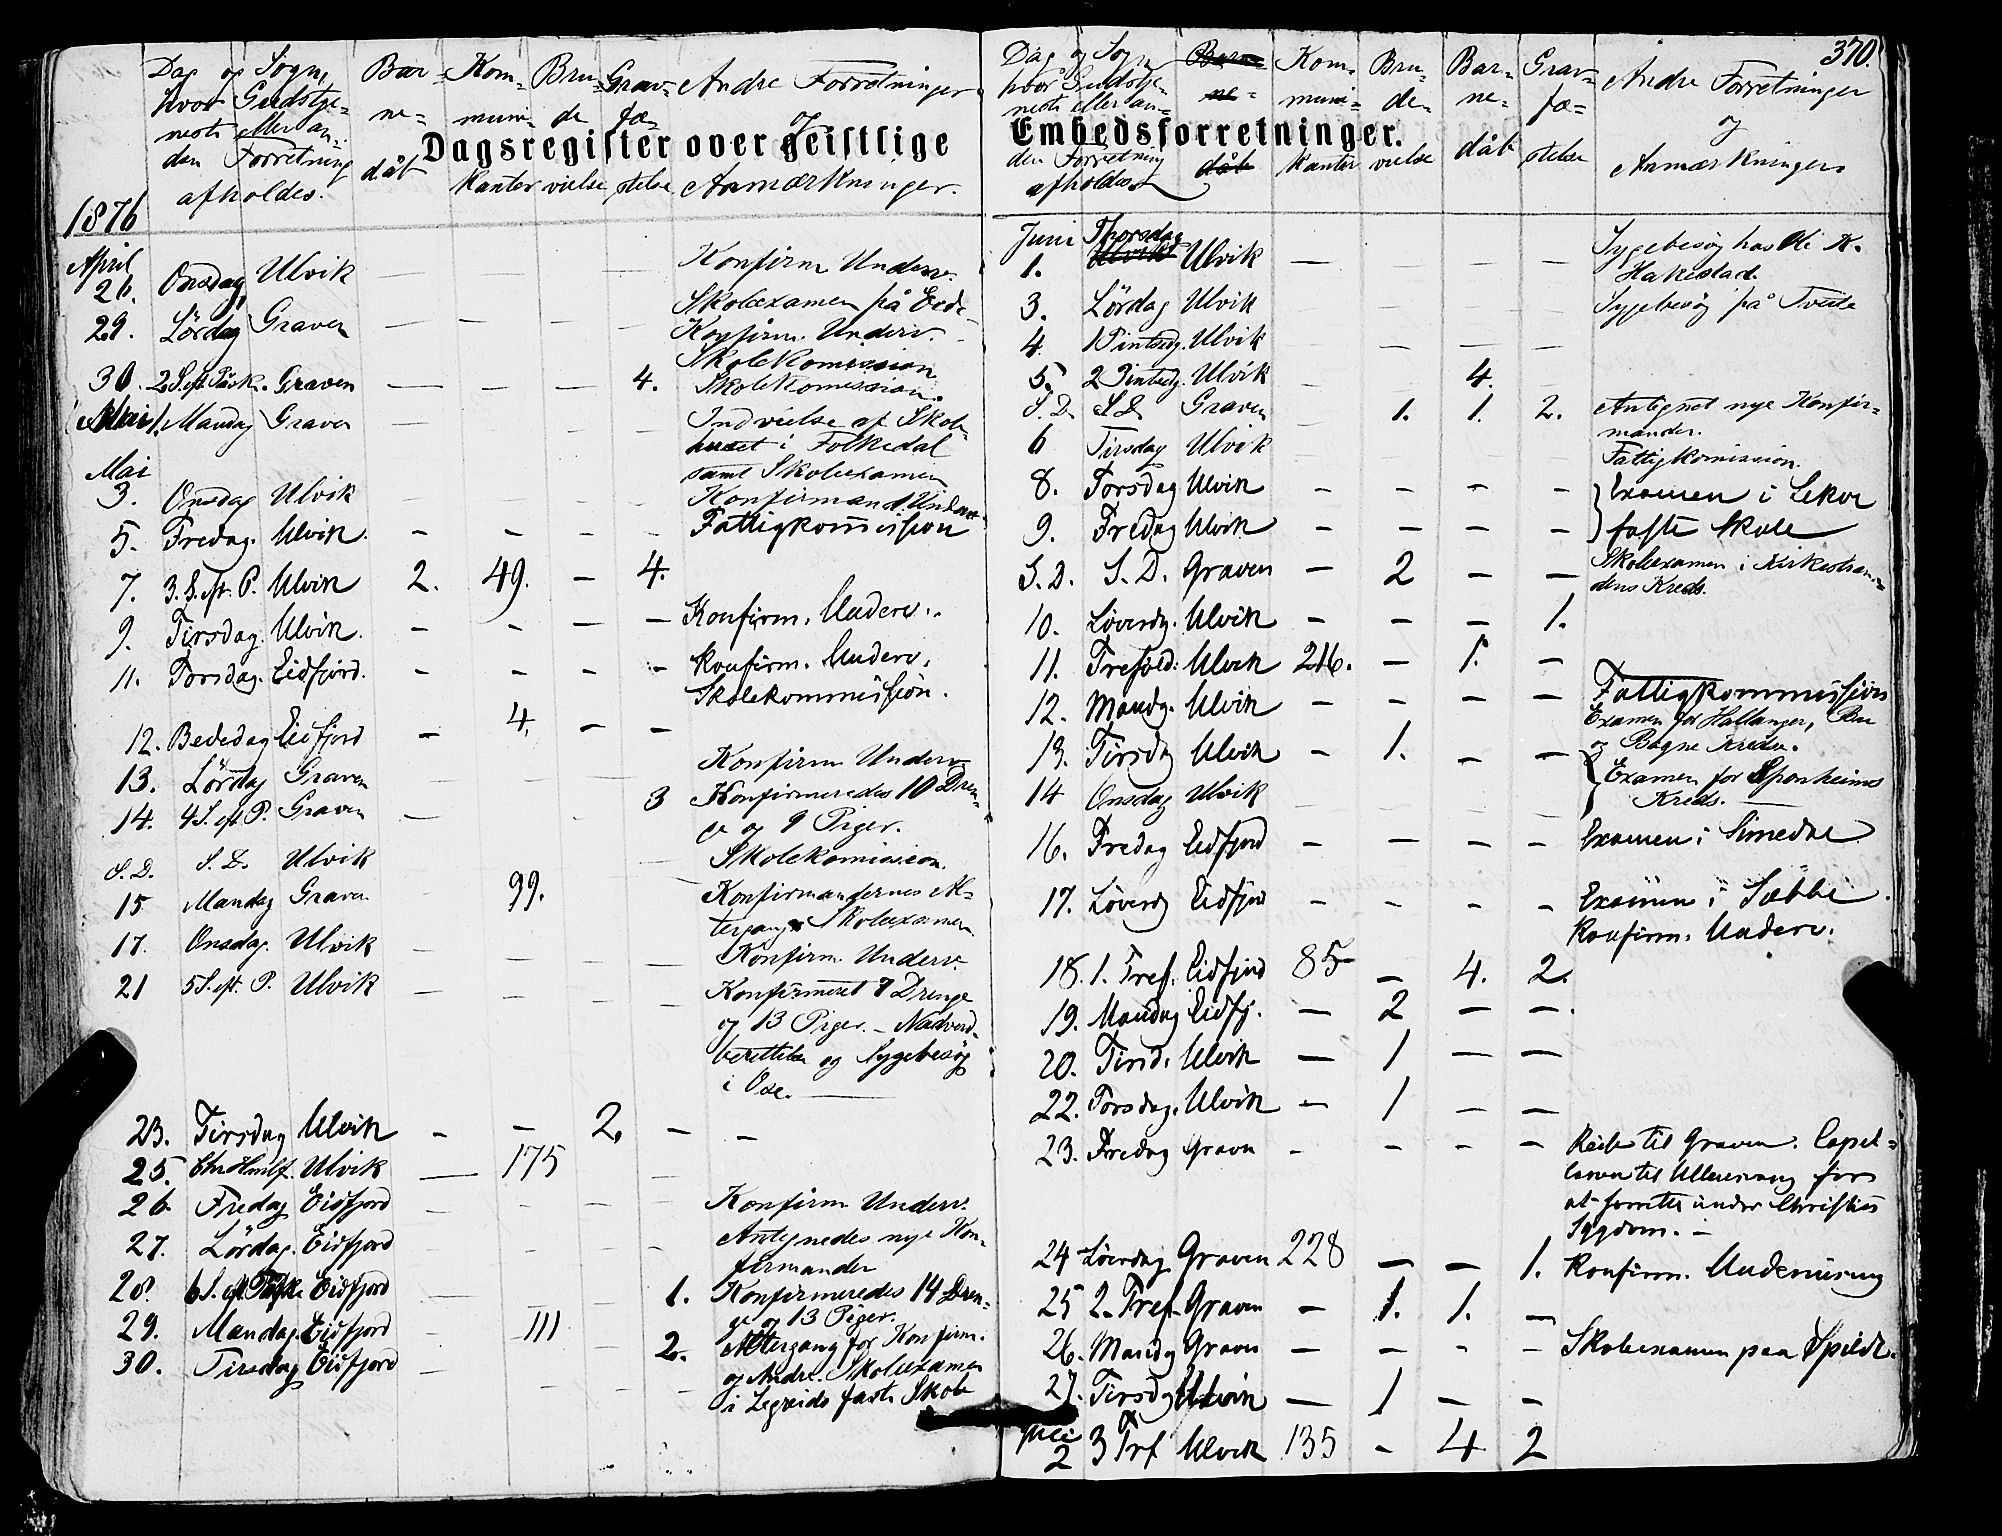 370.
Dagsregister over geistlige Embedsforretninger.
Dag og Sogn, hvor Gudstje- neste eller an- den Forretning afholdes.
Bar- ne- dåb
Kom- muni- kanter
Bru- de vielse
Grav- fæ- stelse
Andre Forretninger og Anmærkninger.
1876
April
26. Onsdag Ulvik — — — — Konfirm Underv.
29. Lördag Graven — — — — Skolexamen på Eide
Konfirm. Underv.
Skolekomission
30. 2 S. eft. Påsk. Graven — — — 4. Skolekomission.
Mai 1. Mandag Graven — Indvielse af Skole-
huset i Folkedal
samt Skolexamen
Mai
3. Onsdag Ulvik — Konfirmand. Underv
5. Fredag. Ulvik. — — — — Fattigkommission
7. 3. S. eft. P. Ulvik 2. 49. — 4.
9. Tirsdag. Ulvik. — — — — Konfirm. Underv.
11. Torsdag. Eidfjord. — — — — Konfirm. Underv.
Skolekommission.
12. Bededag Eidfjord — 4. — —
13. Lördag Graven Konfirm Underv
14. 4 S. eft P. Graven — 3 Konfirmeredes 10 Dren-
ge og 9 Piger.
S. D. S. D. Ulvik — Skolekomission.
15 Mandag Graven 99. Konfirmandernes Al-
tergang Skolexamen
17. Onsdag. Ulvik — — — — Konfirm Underv.
21 5 S. eft. P. Ulvik — — — — Konfirmeret 8 Drenge
og 13 Piger. — Nadverd-
berettelse og Sygebesög
i Ose.
23. Tirsdag Ulvik — — 2. — —
25. Chr Himlf. Ulvik — 175
26 Fredag Eidfjord — — — Konfirm Underv.
27. Lördag. Eidfjord — Antegnedes nye Kon-
firmander
28. 6 S. eft Påske Eidfjord — — 1. Konfirmeredes 14 Dren-
ge og 13 Piger.
29. Mandag. Eidfjord — 111 — 2. Altergang for Konfirm.
og Andre. Skolexamen
30. Tirsdag Eidfjord — — — — i Legreids faste Skole
Dag og Sogn hvor Gudstje- neste eller an- den Forretning afholdes
Barne- dåb
Kom- muni- kanter
Bru- de- vielse
Bar- ne- dåb
Grav- fæ- stelse
Andre Forretninger og Anmærkninger
Juni
1. Thorsdag Ulvik — — — — Sygebesög hos Ole K.
Hakestad.
3. Lördag Ulvik Sygebesög på Tveite
4. 1 Pintsedg. Ulvik — — — —
5. 2 Pintsedg. Ulvik — 4.
S. D. S D Graven — 1. 1. 2. Antegnet nye Konfir-
mander.
6 Tirsdag Ulvik Fattigkomission.
8. Torsdag Ulvik — — — — Examen i Lekve
9. Fredag Ulvik — — — — faste Skole
S. D. S. D. Graven — 2 — — Skolexamen i Kirkestran-
dens Kreds.
10. Löverdg. Ulvik — — — 1.
11. Trefold: Ulvik 216. — 1. —
12. Mandg. Ulvik — — — — Fattigkommission
Examen for Hallanger, Bu
og Bagne Kredse.
13. Tirsdg Ulvik — 1. — —
14 Onsdag Ulvik Examen for Sponheims
Kreds. —
16. Fredag Eidfjord — — — — Examen i Simedal
17. Löverdg Eidfjord — — — — Examen i Sæbbe.
Konfirm. Underv.
18. 1. Tref. Eidfjord 85 — 4. 2.
19. Mandag Eidfj. — 2 — —
20. Tirsd. Ulvik — 1 — —
22. Torsdag. Ulvik — 1 — —
23. Fredag Graven — — — — Reise til Graven. Capel-
lanen til Ullensvang for
at forrette under Christies
Sygdom. —
24 Löverdag Graven 228 — — 1. Konfirm. Underviisning
25 2. Tref. Graven — 1. 1. —
26. Mandg Graven — — — — Skolexamen paa Spildr.
27. Tirsdg Ulvik — 1 — —
Juli
2 3 Trf Ulvik 135 — 4 2